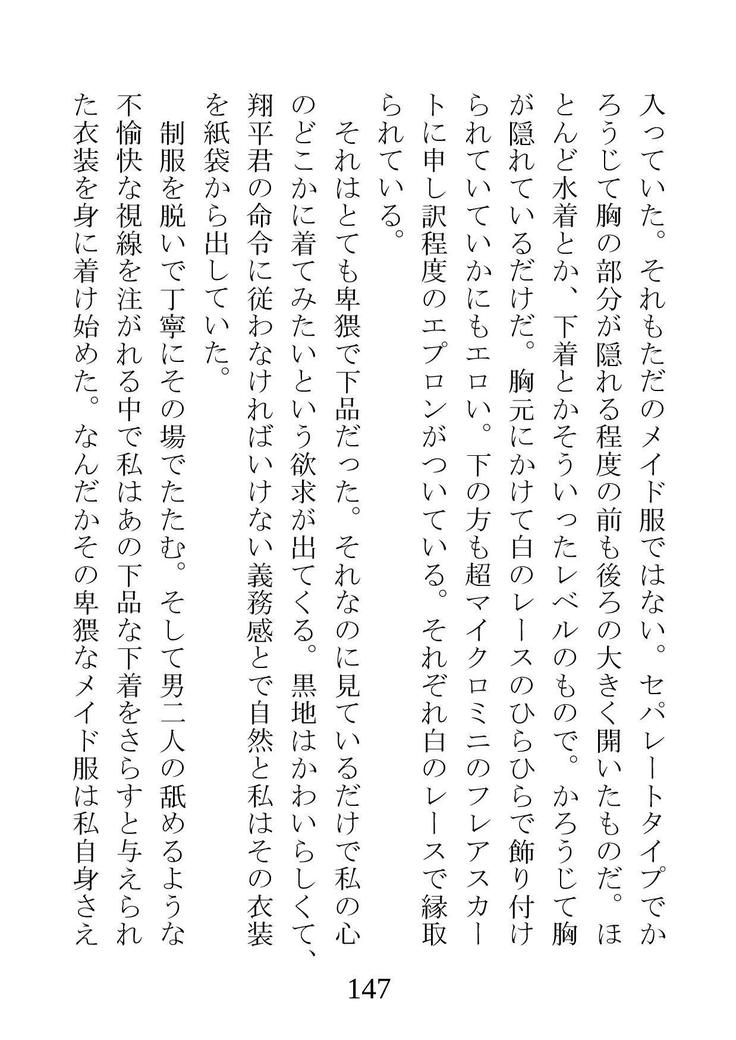 入っていた。それもただのメイド服ではない。セパレートタイプでか
ろうじて胸の部分が隠れる程度の前も後ろの大きく開いたものだ。ほ
とんど水着とか、下着とかそういったレベルのもので。かろうじて胸
が隠れているだけだ。胸元にかけて白のレースのひらひらで飾り付け
られていていかにもエロい。下の方も超マイクロミニのフレアスカー
トに申し訳程度のエプロンがついている。それぞれ白のレースで縁取
られている。
それはとても卑猥で下品だった。それなのに見ているだけで私の心
のどこかに着てみたいという欲求が出てくる。黒地はかわいらしくて、
翔平君の命令に従わなければいけない義務感とで自然と私はその衣装
を紙袋から出していた。
制服を脱いで丁寧にその場でたたむ。そして男二人の舐めるような
不愉快な視線を注がれる中で私はあの下品な下着をさらすと与えられ
た衣装を身に着け始めた。なんだかその卑猥なメイド服は私自身さえ
147